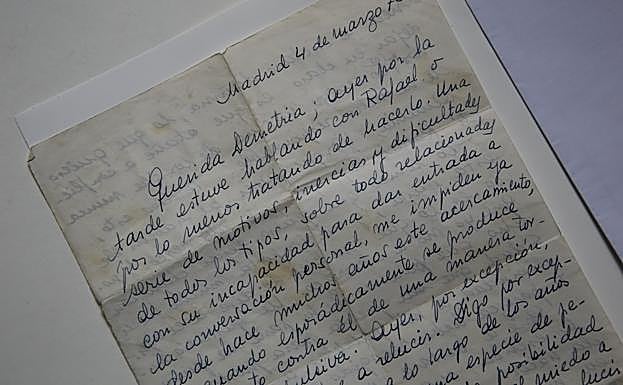 Madrid 4 de marzo
Querida Demetria; ayer por la
tarde estuve hablando con Rafael o
por lo menos tratando de hacerlo. Una
serie de motivos, inercias y dificultades
de todos los tipos, sobre todo relacionadas
con su incapacidad para dar entrada a
la conversación personal, me impiden ya
desde hace muchos años este acercamiento,
cuando esporádicamente se produce
contra él de una manera tor-
Ayer, por excepción,
a relucir. Digo por excep-
a lo largo de los años
una especie de
posibilidad
el miedo a